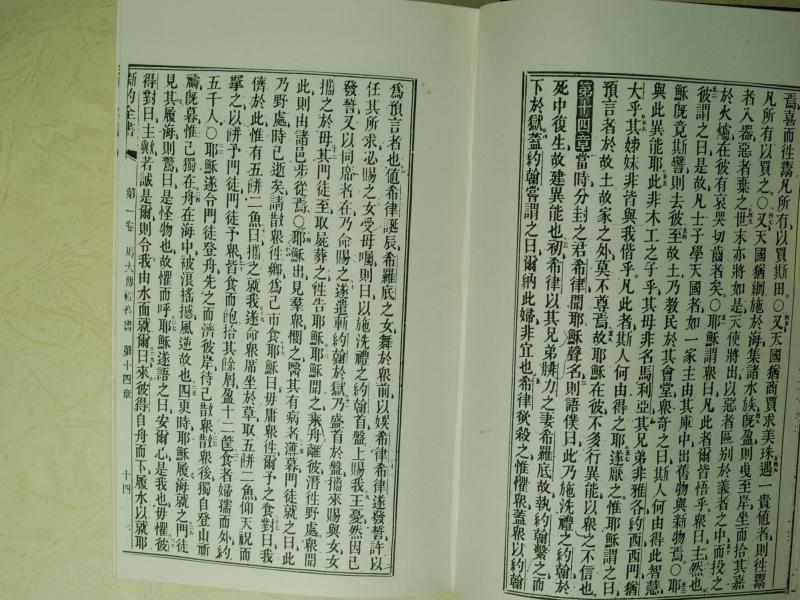 焉喜而徃鬻凡所有以買斯田〇又天國猶商買求美珠遇一貴値者則徃鬻
凡所有以買之〇又天國猶網施於海集諸水族旣盈則曳至岸坐而拾其嘉
者入器惡者棄之世末亦將如是天使將出以惡者區别於義者之中而投之
於火爐在彼有哀哭切齒者矣〇耶穌謂衆曰凡此者爾皆悟乎衆曰主然也
彼謂之曰是故凡士子學天國者如一家主由其庫中出舊物與新物焉〇耶
穌旣竟斯譬則去彼至故土乃教民於其會堂衆奇之曰斯人何由得此智慧
與此異能耶此非木工之子乎其母非名馬利亞其兄弟非雅各約西西門猶
大乎其姊妹非皆與我偕乎凡此者斯人何由得之耶遂厭之惟耶穌謂之曰
預言者於故土故家之外莫不尊焉故耶穌在彼不多行異能以衆之不信也
第十四章當時分封之君希律聞耶穌聲名則語僕曰此乃施洗禮之約翰於
死中復生故建異能也初希律以其兄弟腓力之妻希羅底故執約翰繫之而
下於獄蓋約翰嘗謂之曰爾納此婦非宜也希律欲殺之惟懼衆蓋衆以約翰
爲預言者也値希律誕辰希羅底之女舞於衆前以娛希律希律遂發誓許以
任其所求必賜之女受母囑則曰以施洗禮之約翰首盤上賜我王憂然因已
發誓又以同席者在乃命賜之遂遣斬約翰於獄乃盛首於盤攜來賜與女女
攜之於母其門徒至取屍葬之徃告耶穌耶穌聞之乘舟離彼潛徃野處衆聞
此則由諸邑步從焉〇耶穌出見羣衆憫之醫其有病者薄暮門徒就之曰此
乃野處時已逝矣請散衆徃鄕爲己市食耶穌曰毋庸衆徃爾予之食對曰我
儕於此惟有五餅二魚曰攜之就我遂命衆席坐於草取五餅二魚仰天祝而
擘之以餅予門徒門徒予衆皆食而飽拾其餘屑盈十二筐食者婦孺而外約
五千人〇耶穌遂令門徒登舟先之而濟彼岸待己散衆散衆後獨自登山祈
禱旣暮惟己獨在舟在海中被浪搖撼風逆故也四更時耶穌履海就之門徒
見其履海則驚曰是怪物也故懼而呼耶穌遂語之曰安爾心是我也毋懼彼
得對曰主歟若誠是爾則令我由水面就爾曰來彼得自舟而下履水以就耶
新約全書 第一卷 馬太傳福音書 第十四章 十四